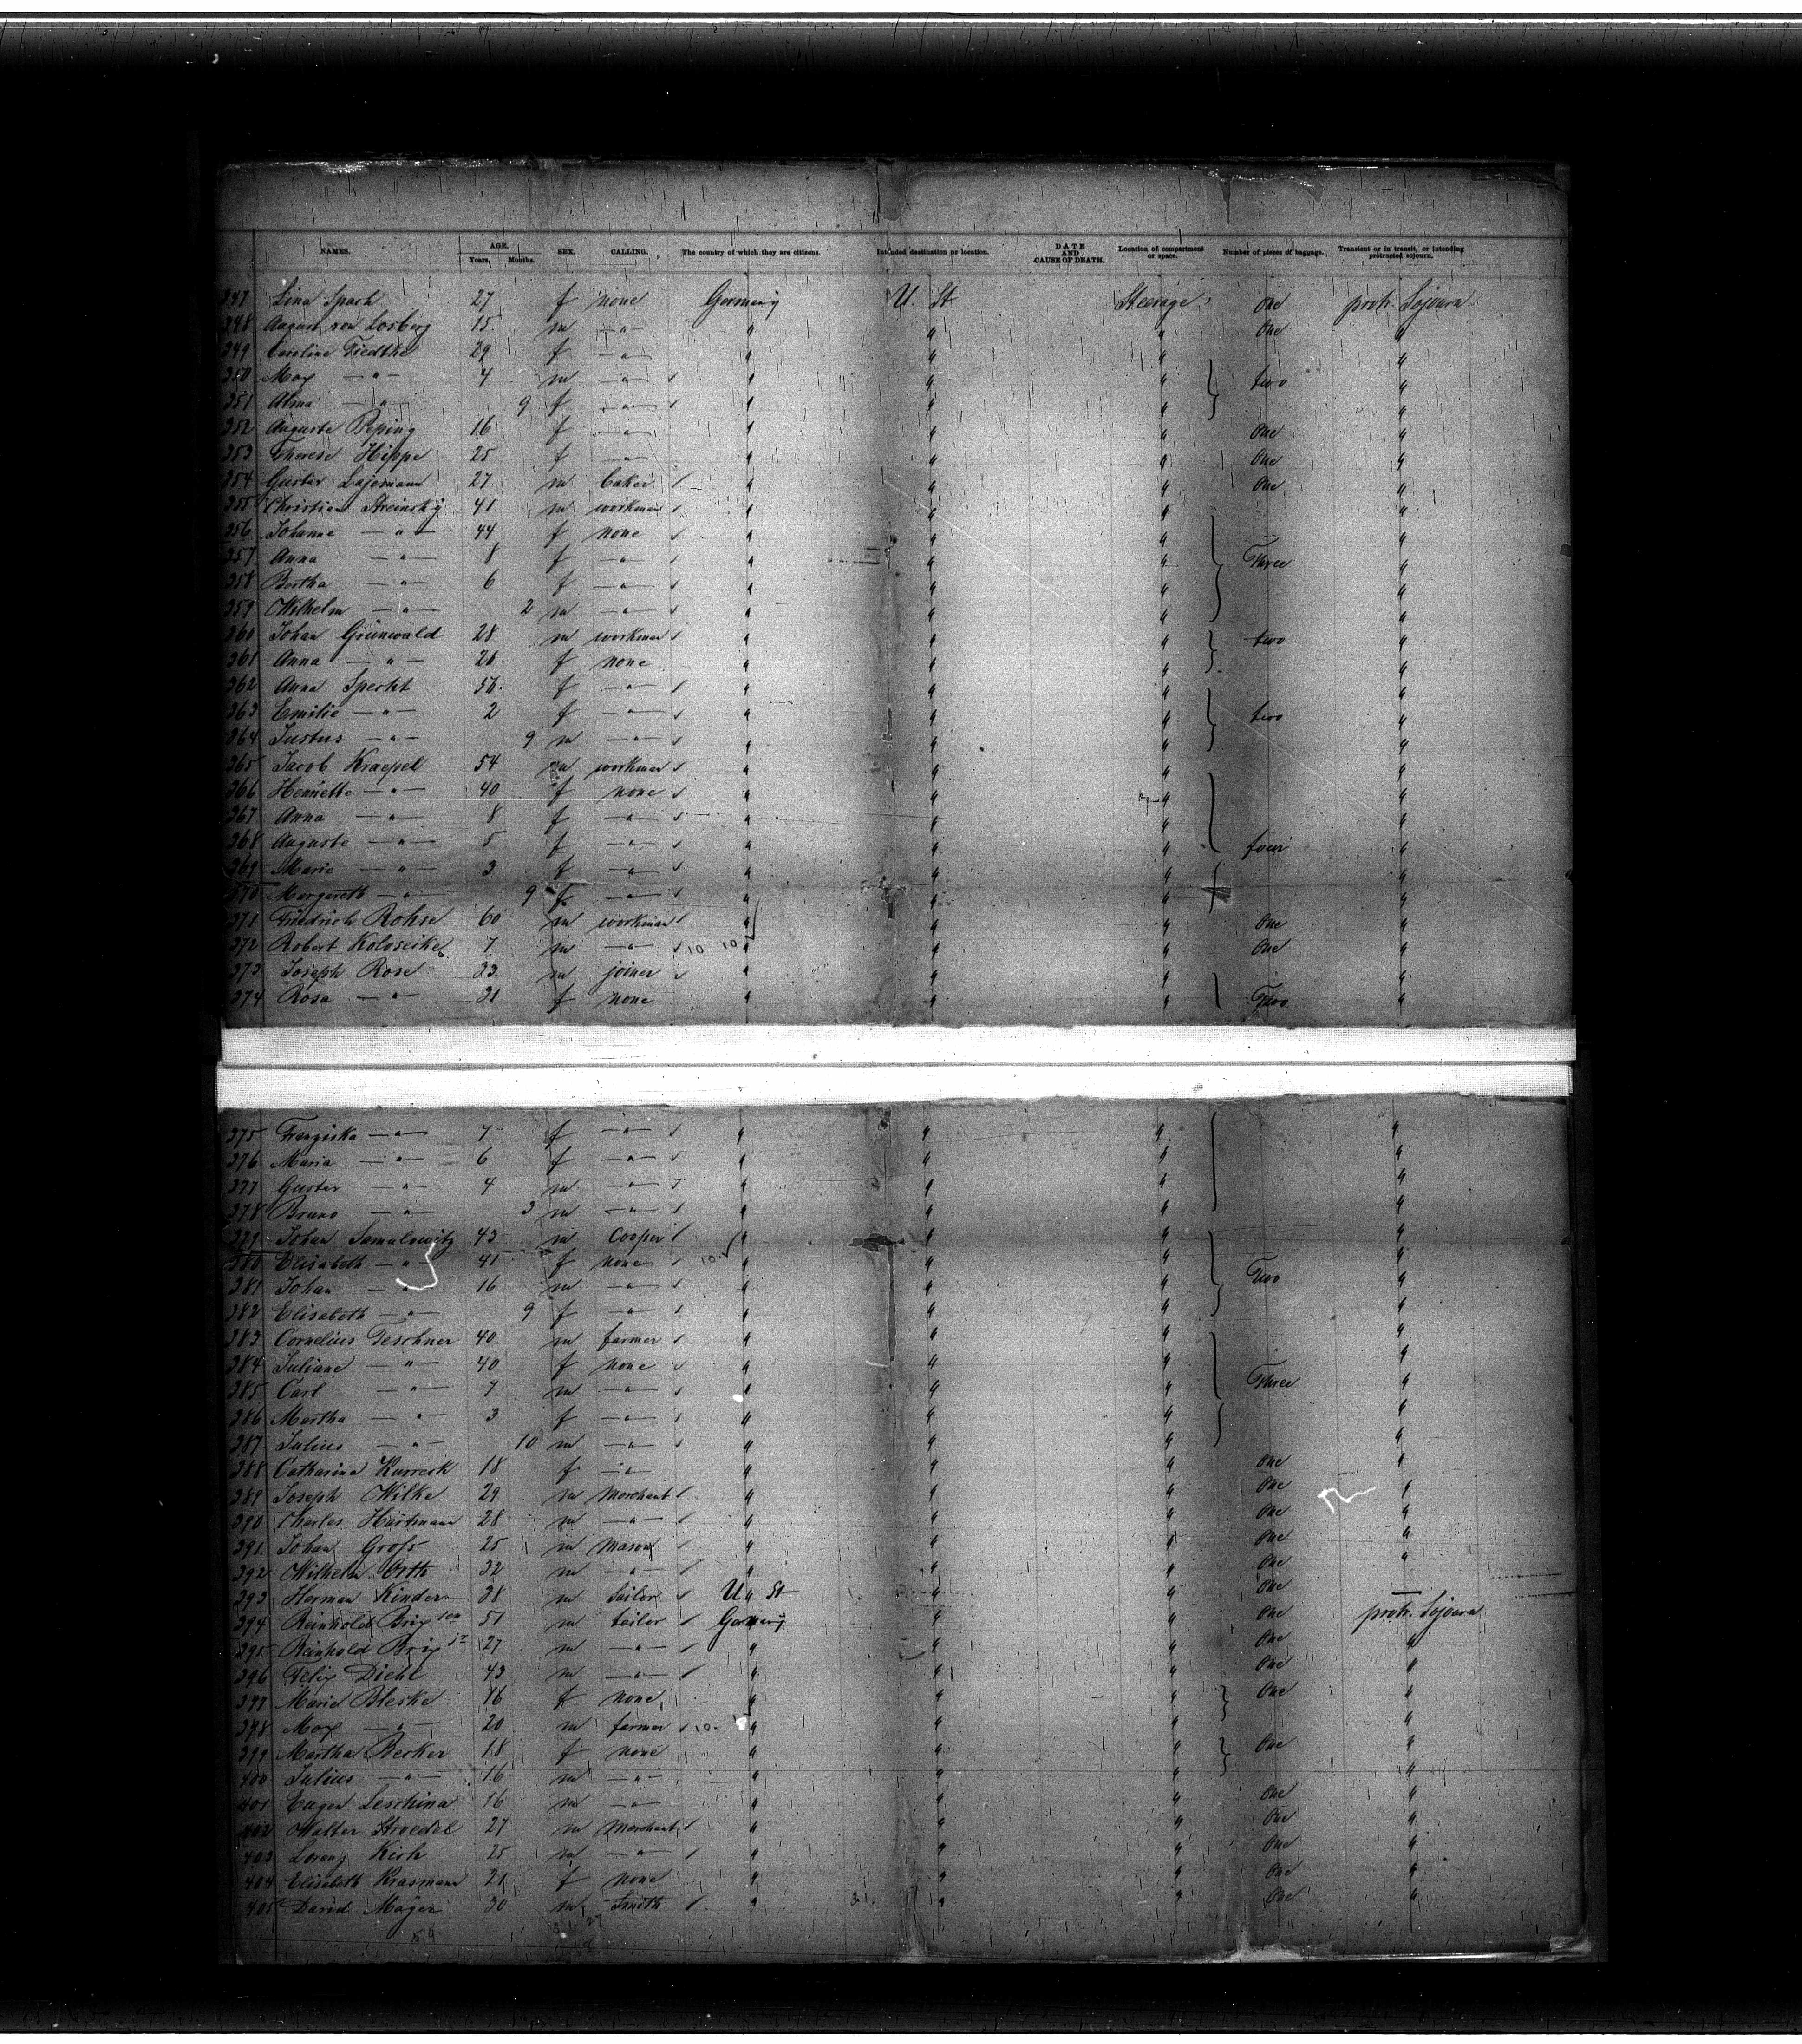 NAMES. AGE. SEX. CALLING. The country of which they are citizens. Intended destination or location. DATE AND CAUSE OF DEATH. Location of compartment or space. Number of pieces of baggage. Transient or in transit, or intending protracted sojourn.
Years. Months.
347 Lina Spach 27 f none Germany U. St Steerage One protr. Sojourn
348 August von Losberg 15 m —"— " " " One "
349 Caroline Tiedtke 29 f —"— " " " "
350 Max —"— 4 m —"— " " " two "
351 Alma —"— 9 f —"— " " " "
352 Auguste Beping 16 f —"— " " " One "
353 Therese Hippe 25 f —"— " " " One "
354 Gustav 27 m baker " " " One "
355 Christian 41 m workman " " " "
356 Johanne —"— 44 f none " " " "
357 Anna —"— 8 f —"— " " " Three "
358 Bertha —"— 6 f —"— " " " "
359 Wilhelm —"— 2 m —"— " " " "
360 Johan Grünwald 28 m workman " " " two "
361 Anna —"— 26 f none " " " "
362 Anna Specht 56 f —"— " " " "
363 Emilie —"— 2 f —"— " " " two "
364 Justus —"— 9 m —"— " " " "
365 Jacob Kraepel 54 m workman " " " "
366 Henriette —"— 40 f none " " " "
367 Anna —"— 8 f —"— " " " "
368 Auguste —"— 5 f —"— " " " four "
369 Marie —"— 3 f —"— " " " "
370 Margareth —"— 9 f —"— " " " "
371 Friedrich Rohse 60 m workman " " " One "
372 Robert Koloseike 7 m —"— 10 10 " " " One "
373 Joseph Rose 33 m joiner " " " "
374 Rosa —"— 31 f none " " " Two "
375 Franziska —"— 7 f —"— " " " "
376 Maria —"— 6 f —"— " " " "
377 Gustav —"— 4 m —"— " " " "
378 Bruno —"— 3 m —"— " " " "
379 Johan Samulowitz 43 m Cooper " " " "
380 Elisabeth —"— 41 f none 10 " " " Two "
381 Johan —"— 16 m —"— " " " "
382 Elisabeth —"— 9 f —"— " " " "
383 Cornelius Teschner 40 m farmer " " " "
384 Juliane —"— 40 f none " " " "
385 Carl —"— 7 m —"— " " " Three "
386 Martha —"— 3 f —"— " " " "
387 Julius —"— 10 m —"— " " " "
388 Catharina Kurreck 18 f —"— " " " One "
389 Joseph Wilke 29 m Merchant " " " One "
390 Charles Hartmann 28 m —"— " " " One "
391 Johan Grofs 25 m Mason " " " One "
392 Wilhelm Orth 32 m —"— " " " One "
393 Herman Kinder 38 m Sailor U. St " " One —
394 Reinhold Brix sen 51 m tailor Germany " " One protr. Sojourn
395 Reinhold Brix jr 27 m —"— " " " One "
396 Felix Diehl 43 m —"— " " " One "
397 Marie Bleske 16 f none " " " One "
398 Max —"— 20 m farmer 10 " " " "
399 Martha Becker 18 f none " " " One "
400 Julius —"— 16 m —"— " " " "
401 Eugen Leschina 16 m —"— " " " One "
402 Walter Stroedel 27 m Merchant " " " One "
403 Lorenz Kirh 25 m —"— " " " One "
404 Elisabeth Krasmann 21 f none " " " One "
405 David Majer 30 m Smith " " " One "